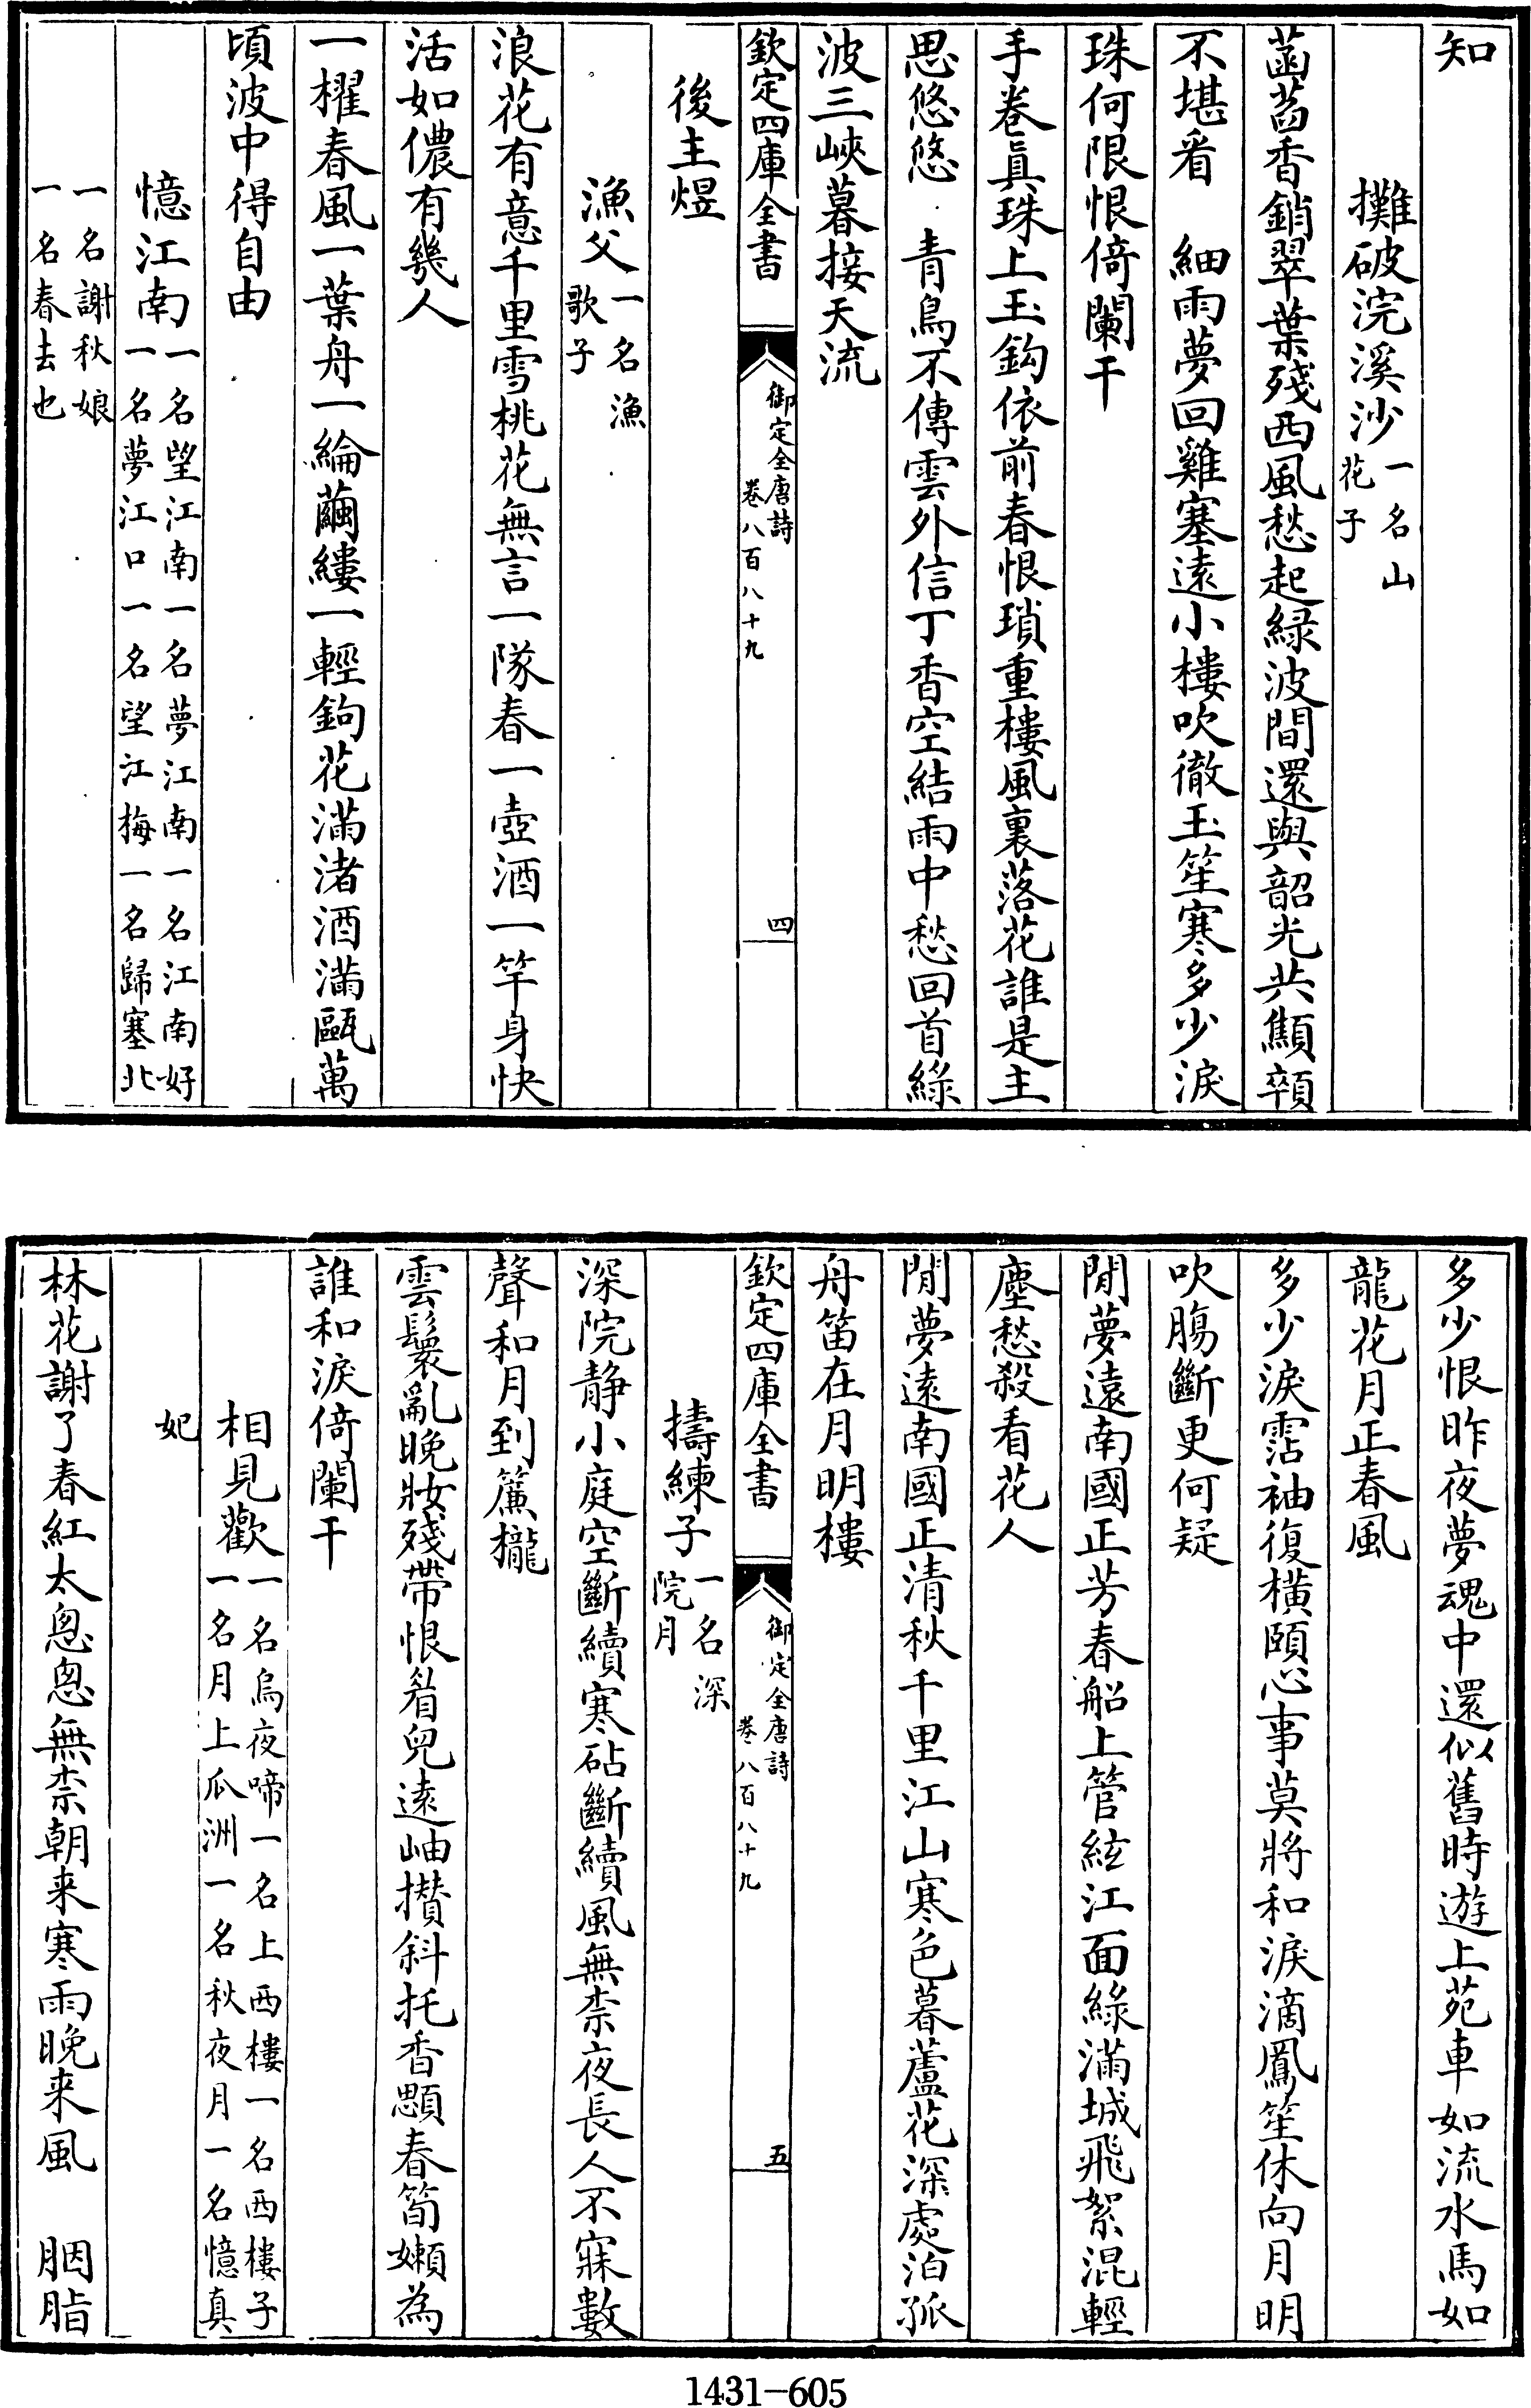 知
攤破浣溪沙一名山
花子
菡萏香銷翠葉殘西風愁起緑波間還與韶光共顦顇
不堪看　細雨夢回雞塞遠小樓吹徹玉笙寒多少淚
珠何限恨倚闌干
手卷真珠上玉鈎依前春恨瑣重樓風裏落花誰是主
思悠悠　青鳥不傳雲外信丁香空結雨中愁回首綠
波三峽暮接天流
欽定四庫全書
御定全唐詩
卷八百八十九
四
後主煜
漁父一名漁
歌子
浪花有意千里雪桃花無言一隊春一壺酒一竿身快
活如儂有幾人
一櫂春風一葉舟一綸繭縷一輕鉤花滿渚酒滿甌萬
頃波中得自由
憶江南一名望江南一名夢江南一名江南好
一名夢江口一名望江梅一名歸塞北
一名謝秋娘
一名春去也
多少恨昨夜夢魂中還似舊時遊上苑車如流水馬如
龍花月正春風
多少淚霑袖復橫頤心事莫將和淚滴鳳笙休向月明
吹腸斷更何疑
閒夢遠南國正芳春船上管絃江面綠滿城飛絮混輕
塵愁殺看花人
閒夢遠南國正清秋千里江山寒色暮蘆花深處泊孤
舟笛在月明樓
欽定四庫全書
御定全唐詩
卷八百八十九
五
擣練子一名深
院月
深院静小庭空斷續寒砧斷續風無柰夜長人不寐數
聲和月到簾櫳
雲鬟亂晚妝殘帶恨眉兒遠岫攢斜托香顋春筍嬾為
誰和淚倚闌干
相見歡一名烏夜啼一名上西樓一名西樓子
一名月上瓜洲一名秋夜月一名憶真
妃
林花謝了春紅太怱怱無柰朝来寒雨晚来風　胭脂
1431-605